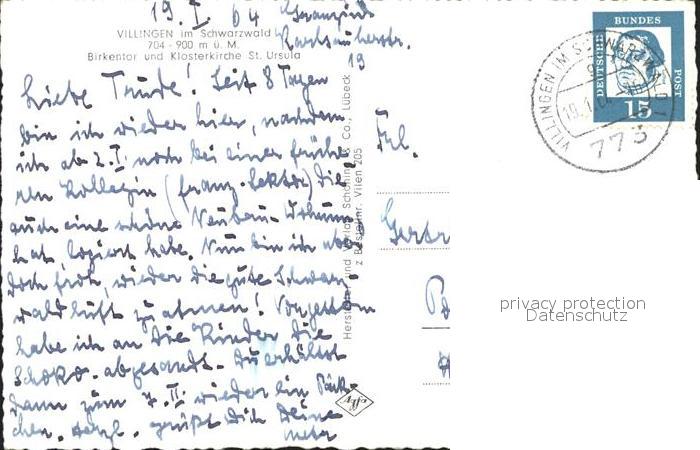 19. I. 64
VILLINGEN im Schwarzwald
704 - 900 m ü. M.
Birkentor und Klosterkirche St. Ursula
19
Liebe Trude! Seit 8 Tagen
bin ich wieder hier, nachdem
ich ab 2.I. noch bei einer frühe
ren Kollegin (franz. Lektor) die
auch eine schöne Neubau-Wohnung
hat, logiert habe. Nun bin ich aber
doch froh, wieder die gute Schwarz-
waldluft zu atmen! Vorgestern
habe ich an die Kinder die
Schoko. abgesandt. Du erhältst
dann zum 7. II. wieder ein Päck-
chen. Herzl. grüßt Dich Deine
Hersteller und Verlag Schöning & Co., Lübeck
Bestellnr. Vilen 205
Frl.
DEUTSCHE BUNDESPOST
15
VILLINGEN IM SCHWARZWALD 1
773
privacy protection
Datenschutz